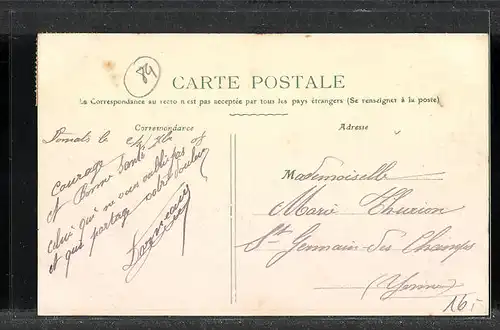 89
CARTE POSTALE
La Correspondance au recto n'est pas acceptée par tous les pays étrangers (Se renseigner à la poste)
Correspondance
Adresse
le
Courage
et Bonne Santé
celui qui ne vous oublie pas
et qui partage votre douleur
Mademoiselle
Marie Thurion
St Germain-des Champs
(Yonne)
16,-